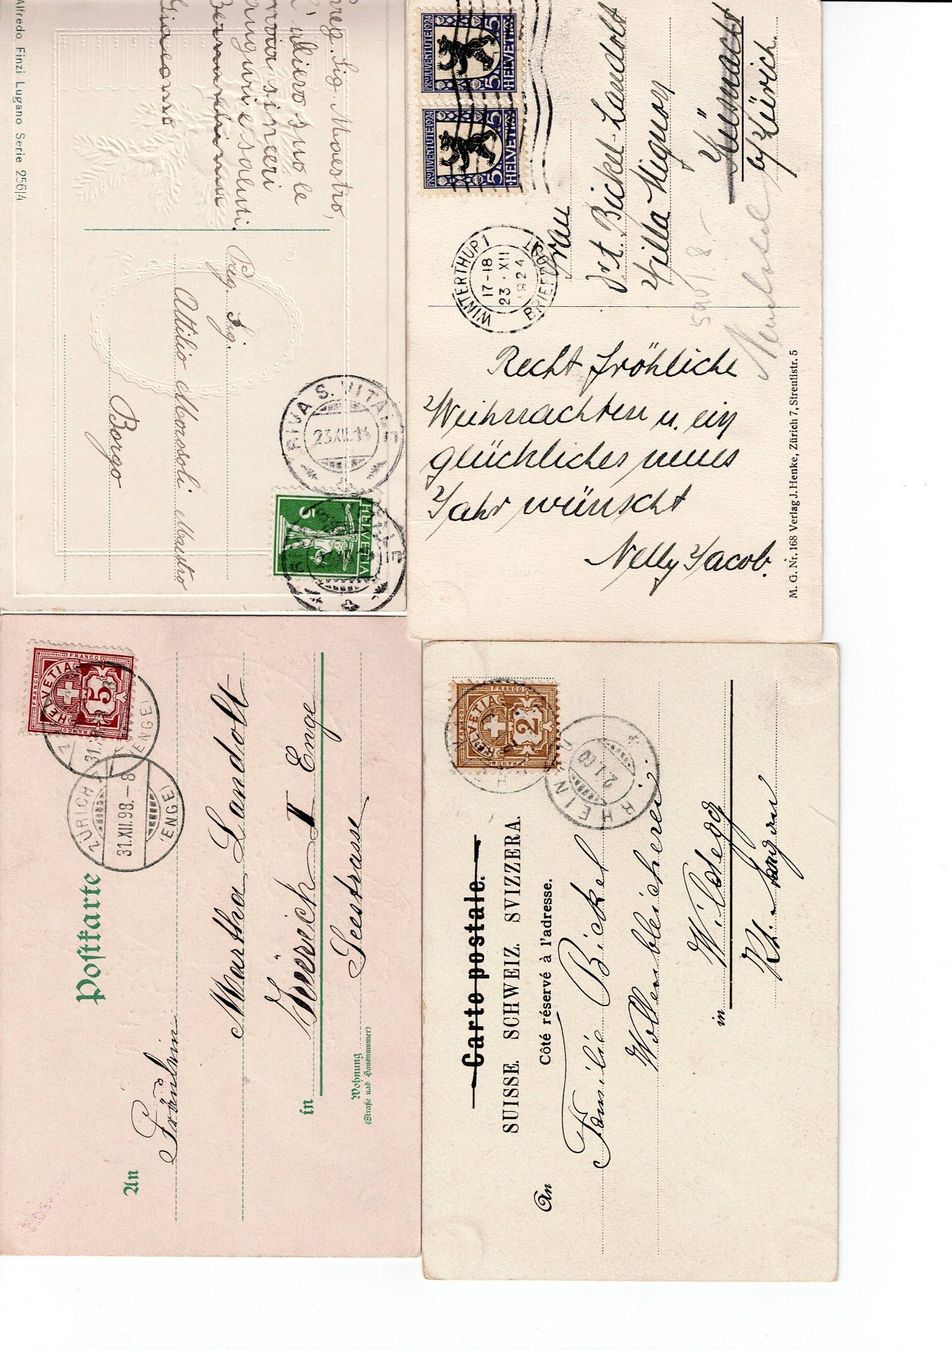 Alfredo Finzi Lugano Serie 256/4
Preg. Sig. Maestro,
L'allievo suo le
invia sinceri
auguri e saluti.
Giacomo
Preg. Sig.
Attilio Morosoli Maestro
Borgo
RIVA S. VITALE
23.XII.14
HELVETIA
5
PRO JUVENTUTE 1924
5
HELVETIA
PRO JUVENTUTE 1924
5
HELVETIA
WINTERTHUR 1
17-18
23.XII
1924
BRIEF
Frau
Dr. A. Bickel-Landolt
Villa Mignon
Küsnacht
b/Zürich.
Recht fröhliche
Weihnachten u. ein
glückliches neues
Jahr wünscht
Nelly Jacob.
M. G. Nr. 168 Verlag J. Henke, Zürich 7, Streulistr. 5
FRANCO
HELVETIA
5
ZÜRICH
31.XII.98.-8
(ENGE)
Postkarte
An
Fräulein
Martha Landolt
in
Zürich II Enge
Seestrasse
Wohnung
(Straße und Hausnummer)
FRANCO
HELVETIA
2
RHEIN
2.I.00
Carte postale.
SUISSE. SCHWEIZ. SVIZZERA.
Côté réservé à l'adresse.
An
Familie Bickel
Wollenbleicherei
in
Wildegg
Kt. Argau